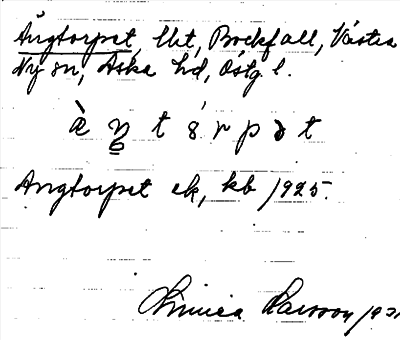 Ängtorpet, lht, Bockfall, Västra
Ny sn, Aska hd, Östg l.
Ängtorpet ek, kb 1925.
Linnea Larsson 193